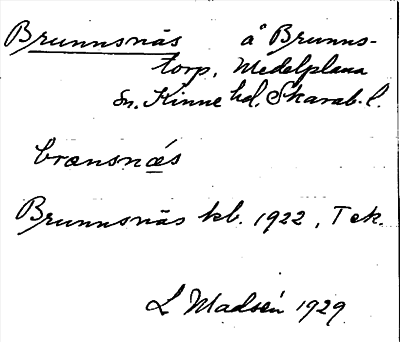 Brunnsnäs å Brunns-
torp, Medelplana
sn. Kinne hd. Skarab. l.
brænsnæ̲s
Brunnsnäs kb. 1922, T ek.
L Madsén 1929